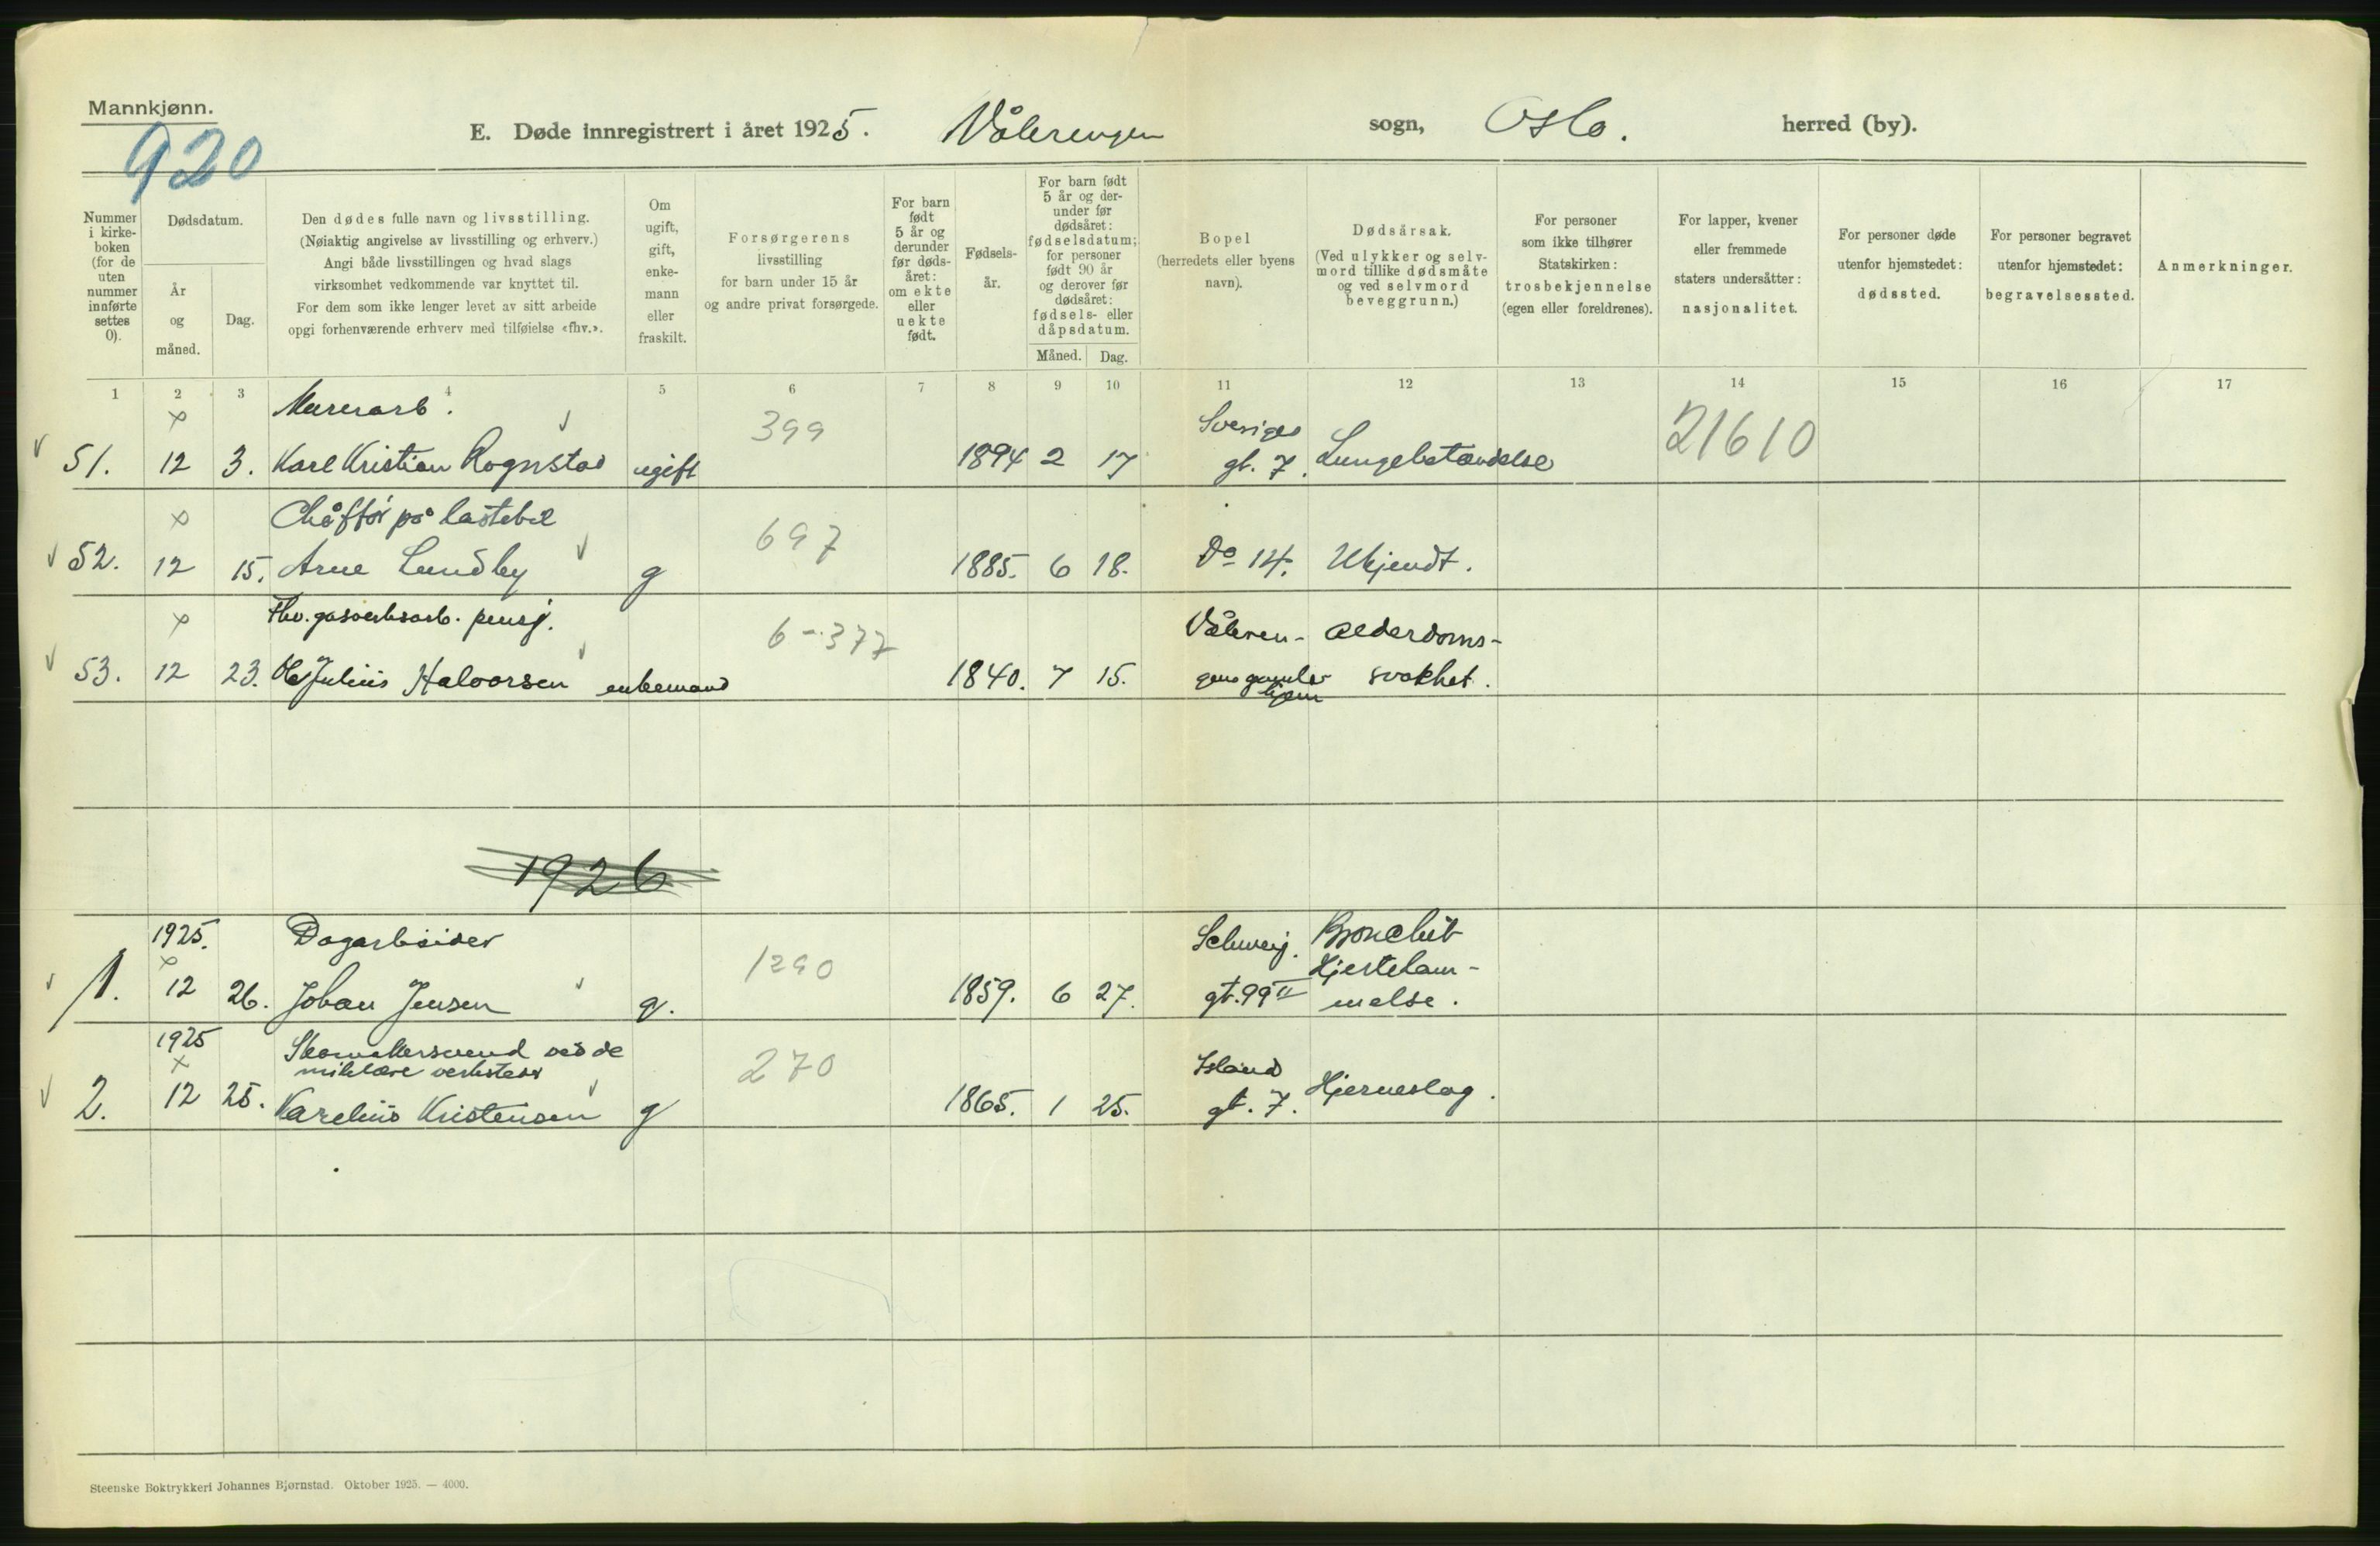 Mannkjønn.
920
E. Døde innregistrert i året 1925. Vålerengen sogn, Oslo. herred (by).
Nummer i kirke- boken (for de uten nummer innførte settes 0).
Dødsdatum.
År og måned.
Dag.
Den dødes fulle navn og livsstilling.
(Nøiaktig angivelse av livsstilling og erhverv.)
Angi både livsstillingen og hvad slags
virksomhet vedkommende var knyttet til.
For dem som ikke lenger levet av sitt arbeide
opgi forhenværende erhverv med tilføielse «fhv.».
Om ugift, gift, enke- mann eller fraskilt.
Forsørgerens
livsstilling
for barn under 15 år
og andre privat forsørgede.
For barn født 5 år og derunder før døds- året: om ekte eller uekte født.
Fødsels- år.
For barn født 5 år og der- under før dødsåret: fødselsdatum; for personer født 90 år og derover før dødsåret: fødsels- eller dåpsdatum.
Måned. Dag.
Bopel
(herredets eller byens
navn).
Dødsårsak.
(Ved ulykker og selv-
mord tillike dødsmåte
og ved selvmord
beveggrunn.)
For personer
som ikke tilhører
Statskirken:
trosbekjennelse
(egen eller foreldrenes).
For lapper, kvener
eller fremmede
staters undersåtter:
nasjonalitet.
For personer døde
utenfor hjemstedet:
dødssted.
For personer begravet
utenfor hjemstedet:
begravelsessted.
Anmerkninger.
1 2 3 4 5 6 7 8 9 10 11 12 13 14 15 16 17
x Murerarb. 399 Sveriges 21610
51. 12 3. Karl Kristian Rognstad ugift 1894 2 17 gt. 7. Lungebetændelse
x Chåffør på lastebil 697
52. 12 15. Arne Lundby g 1885. 6 18. Do 14. Ukjendt.
x Fhv. gasverksarb. pensj. 6-377 Våleren- Alderdoms-
53. 12 23. Ole Julius Halvorsen enkemand 1840. 7 15. gens gamle svakhet.
hjem
1926
1925. Dagarbeider Schweig. Bronchit
x 1290 Hjertelam-
1. 12 26. Johan Jensen g. 1859. 6 27. gt. 99 II melse.
1925 Skomakersvend ved de
x militære verksteder 270 Island
2. 12 25. Karelius Kristensen g 1865. 1 25. gt. 7. Hjerneslag.
Steenske Boktrykkeri Johannes Bjørnstad. Oktober 1925. — 4000.